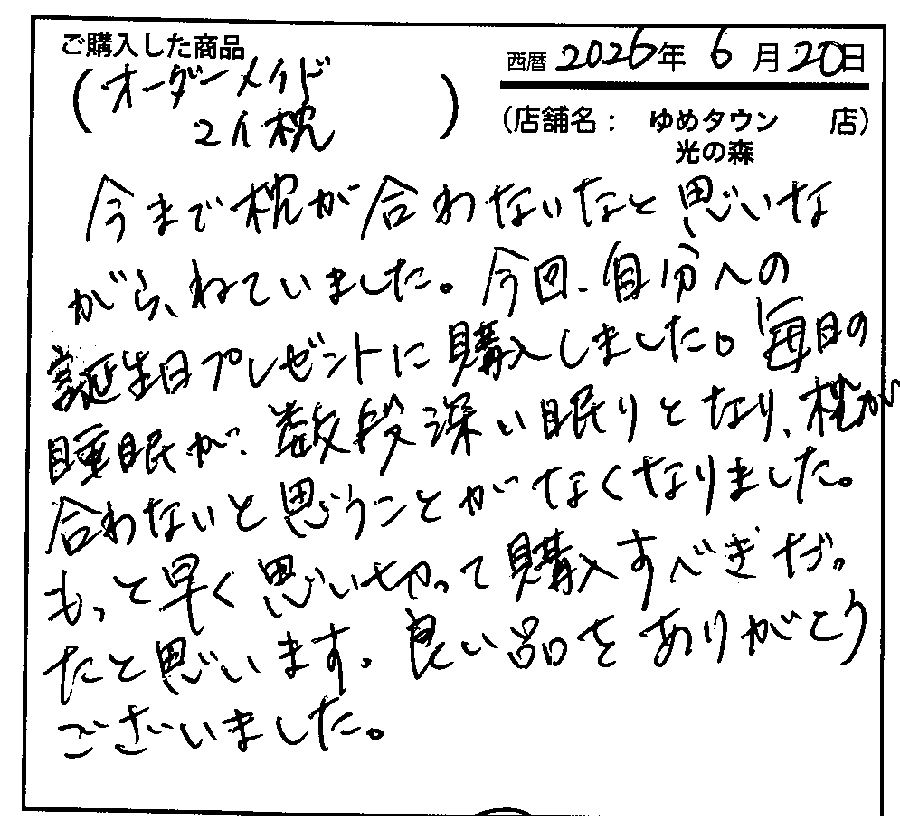 ご購入した商品
西暦 2026年 6月 20日
(オーダーメイド
2イ枕)
(店舗名: ゆめタウン 店)
光の森
今まで枕が合わないなと思いな
がら、ねていました。今回、自分への
誕生日プレゼントに購入しました。毎日の
睡眠が、数段深い眠りとなり、枕が
合わないと思うことがなくなりました。
もっと早く思い切って購入すべきだっ
たと思います。良い品をありがとう
ございました。